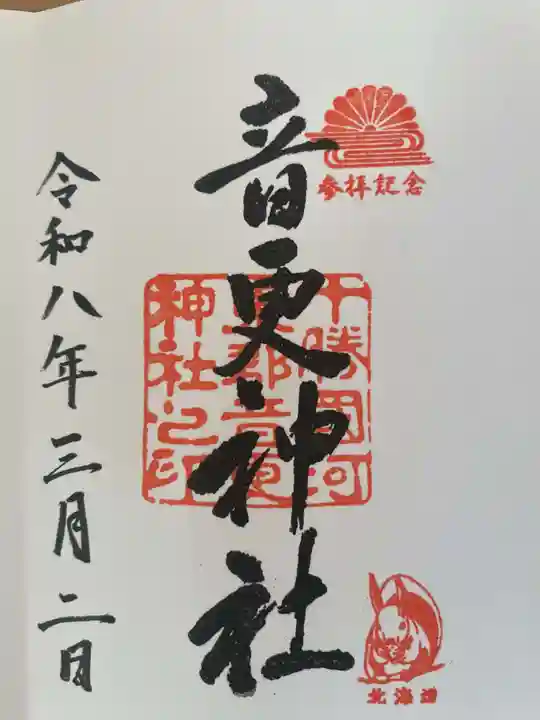 参拝記念
音更神社
十勝国河
東郡音更
神社之印
北海道
令和八年三月二日